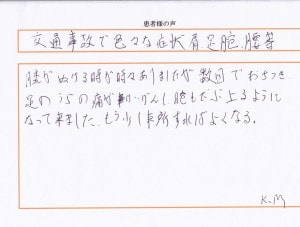 患者様の声
交通事故で色々な症状肩足腕、腰等
膝がぬける時が時々ありましたが数回でおちつき
足のうらの痛が軽げんし、腕もだいぶ上るように
なって来ました。もう少し来所すればよくなる。
K.M